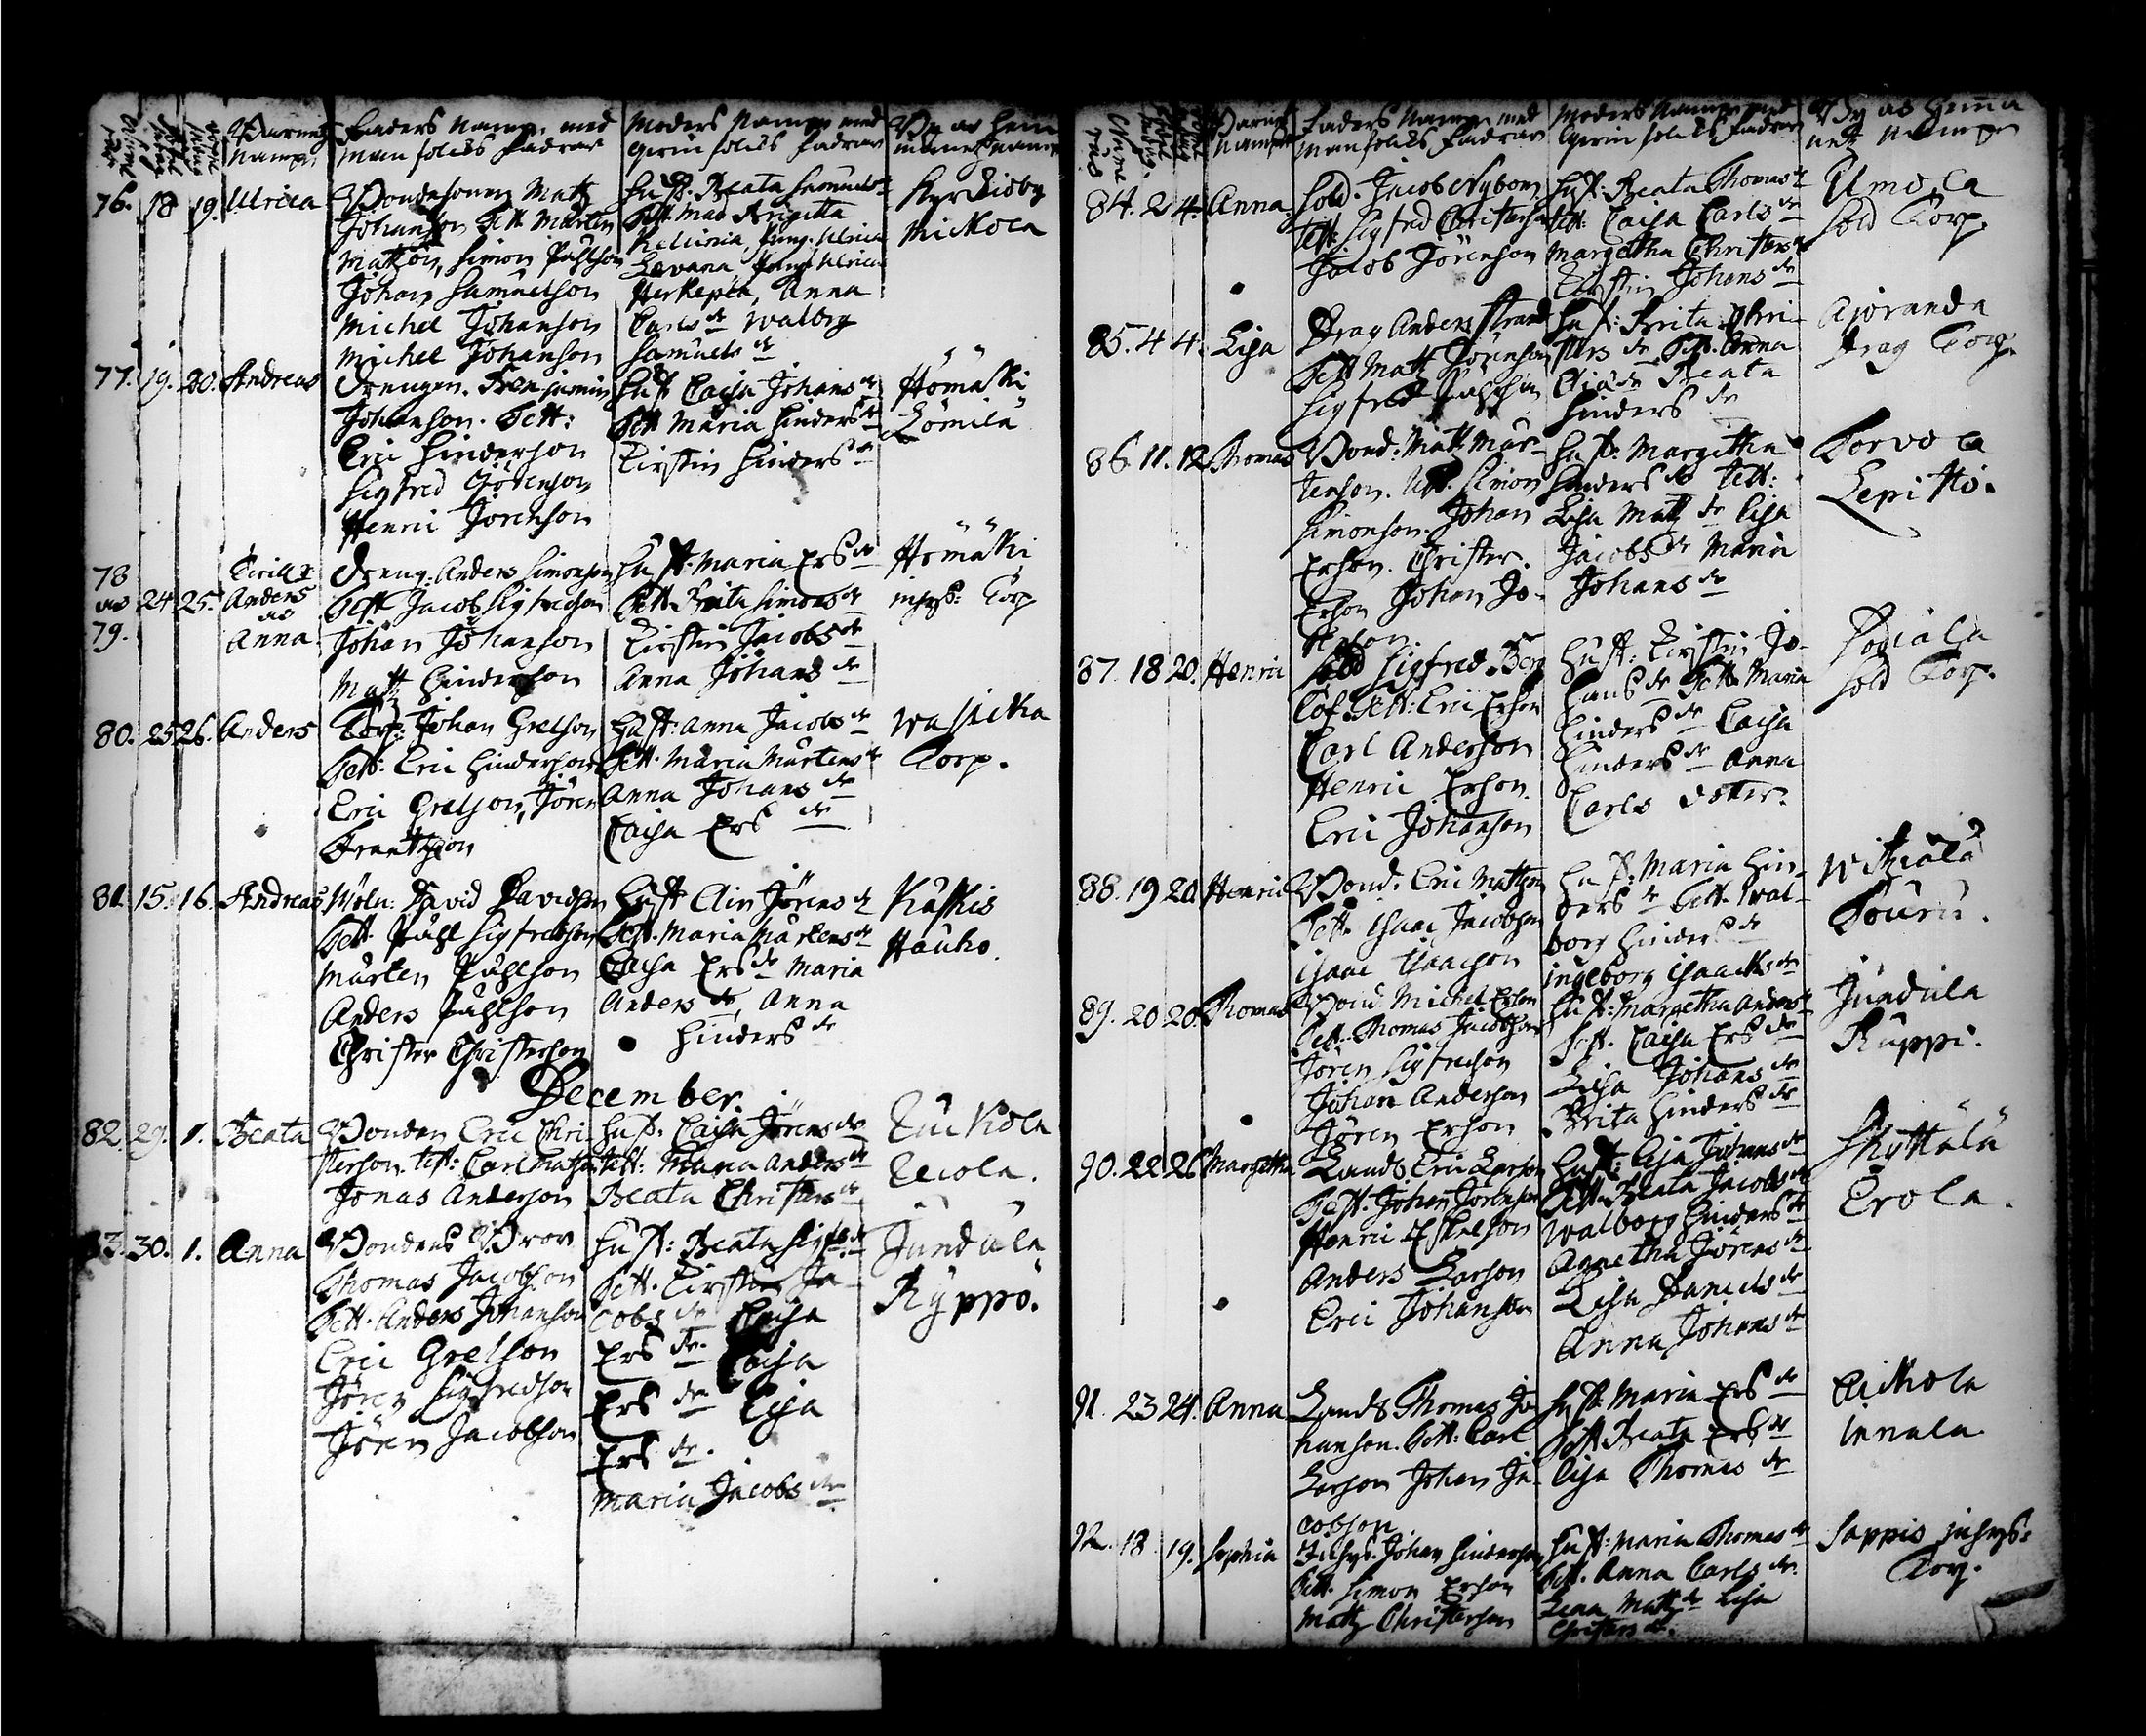 Barnetz Namn
Faders Namn med
manfolcks Fadrar
Moders Namn med
Qvinfolcks Fadrar
By oc Hem
manetz namn
76. 18 19. Ulrica
Bondesonen Matz
Johanson Test. Mårten
Matzson, Simon Påhlson
Johan Samuelson
Michel Johanson
Michel Johanson
Hust. Beata Samuels dr
Test. Mad Brigitta
Ulrica
Anna
Carls dr Walbrg
Samuels dr
Kyrckioby
Mickola
77. 19. 20. Andreas
Drengen. Benjamin
Johanson. Test:
Eric Hinderson
Sigfred Jörenson
Henric Jörenson
Hust Caisa Johans dr
Test Maria Hinders dr
Kirstin Hinders dr
Hömäki
Lömilä
78
oc 24 25.
79.
Anders
oc
Anna
Dreng. Anders Simonson
Test Jacob Sigfredson
Johan Johanson
Matz Hinderson
Hust. Maria Ers dr
Test Brita Simons dr
Kirstin Jacobs dr
Anna Johans dr
Hömäki
inhys: Torp
80. 25 26. Anders
Torp: Johan Grelson
Test: Eric Hinderson
Eric Grelson, Jören
Frantzson
Hust: Anna Jacobs dr
Test. Maria Mårtens dr
Anna Johans dr
Caisa Ers dr
Torp.
81. 15. 16. Andreas
Möln: David Davidson
Test. Påhl Sigfredson
Mårten Påhlson
Anders Påhlson
Christer Christerson
Hust Elin Jörens dr
Test. Maria Mårtens dr
Caisa Ers dr Maria
Anders dr, Anna
Hinders dr
Kaskis
Hauho.
December.
82. 29. 1. Beata
Bonden Eric Chri
sterson. test: Carl Matzson
Jonas Anderson
Hust. Caisa Jörens dr
test: Maria Anders dr
Beata Christers dr
83. 30. 1. Anna
Bondens Bror
Thomas Jacobson
Test. Anders Johanson
Eric Grelson
Jören Sigfredson
Jören Jacobson
Hust: Beata Sigfr dr
Test. Kirstin Ja
cobs dr Caisa
Ers dr. Caisa
Ers dr Lisa
Ers dr.
Maria Jacobs dr
Jundila
Ryppö.
Barnetz
Namn
Faders Namn med
Manfolcks Fadrar
Moders Namn med
Qvinfolcks Fadrar
By oc Hemma
netz Namn
84. 24. Anna
Sold. Jacob Nybom
test: Sigfred Christerson
Jacob Jörenson
Hust: Beata Thomas dr
test: Caisa Carls dr
Margetha Christers dr
Kirstin Johans dr
Sold Torp.
85. 4 4. Lisa
Drag Anders Strand
Test Matz Jörenson
Sigfred Påhlson
Hust: Brita Chri
sters dr Test. Anna
Beata
Hinders dr
Ajoranda
Drag Torp.
86. 11. 12 Thomas
Bond: Matz Mår
tenson. Simon
Simonson. Johan
Erson. Christer.
Erson Johan Jo
hanson.
Hust: Margetha
Hinders dr Test:
Lisa Matz dr Lisa
Jacobs dr Maria
Johans dr
Torvola
87. 18 20. Henric
Sold Sigfred Berg
Test: Eric Erson
Carl Anderson
Henric Erson.
Eric Johanson
Hust: Kirstin Jo-
hans dr Test Maria
Hinders dr Caisa
Hinders dr Anna
Carls doter.
Sold Torp.
88. 19 20. Henric
Bond. Eric Matzson
Test. Isaac Jacobson
Isaac Isaacson
Hust: Maria Hin
ders dr Test. Wal-
borg Hinders dr
Ingeborg Isaacks dr
Wikiälä
Pouru.
89. 20 20. Thomas
Bond. Michel Erson
Test. Thomas Jacobson
Jören Sigfredson
Johan Anderson
Jören Erson
Hust: Margetha Anders dr
Test. Caisa Ers dr
Lisa Johans dr
Brita Hinders dr
Jundila
Ruppi.
90. 22 26. Margetha
Landb. Eric Larson
Test. Johan Jörenson
Henric Eskelson
Anders Larson
Eric Johanson
Hust: Lisa Johans dr
Test. Beata Jacobs dr
Walborg Hinders dr
Annetha Jörens dr
Lisa Daniels dr
Anna Johans dr
Skyttälä
Erola.
91. 23 24. Anna
Landb Thomas Jo
hanson. Test: Carl
Larson Johan Ja
cobson
Hust. Maria Ers dr
Test Beata Ers dr
Lisa Thomas dr
Innala.
92. 18 19. Sophia
Inhys. Johan Hinderson
Test. Simon Erson
Matz Christerson
Hust: Maria Thomas dr
Test. Anna Carls dr.
Lena Matz dr Lisa
Christers dr.
Sappis inhys:
Torp.